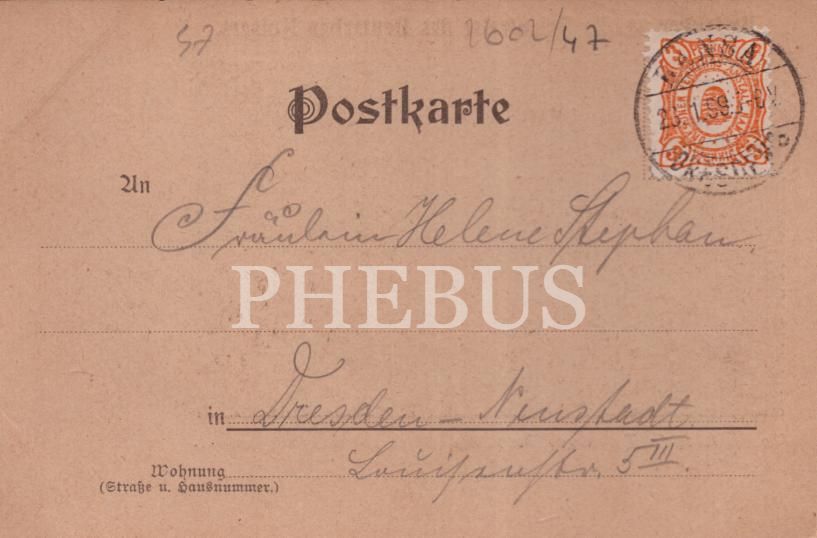 57 2602/47
Postkarte
HANSA
DRESDEN
3 3
An
Fräulein Helene Stephan,
PHEBUS
in Dresden – Neustadt
Wohnung
(Straße u. Hausnummer.)
Louisenstr. 5 III.